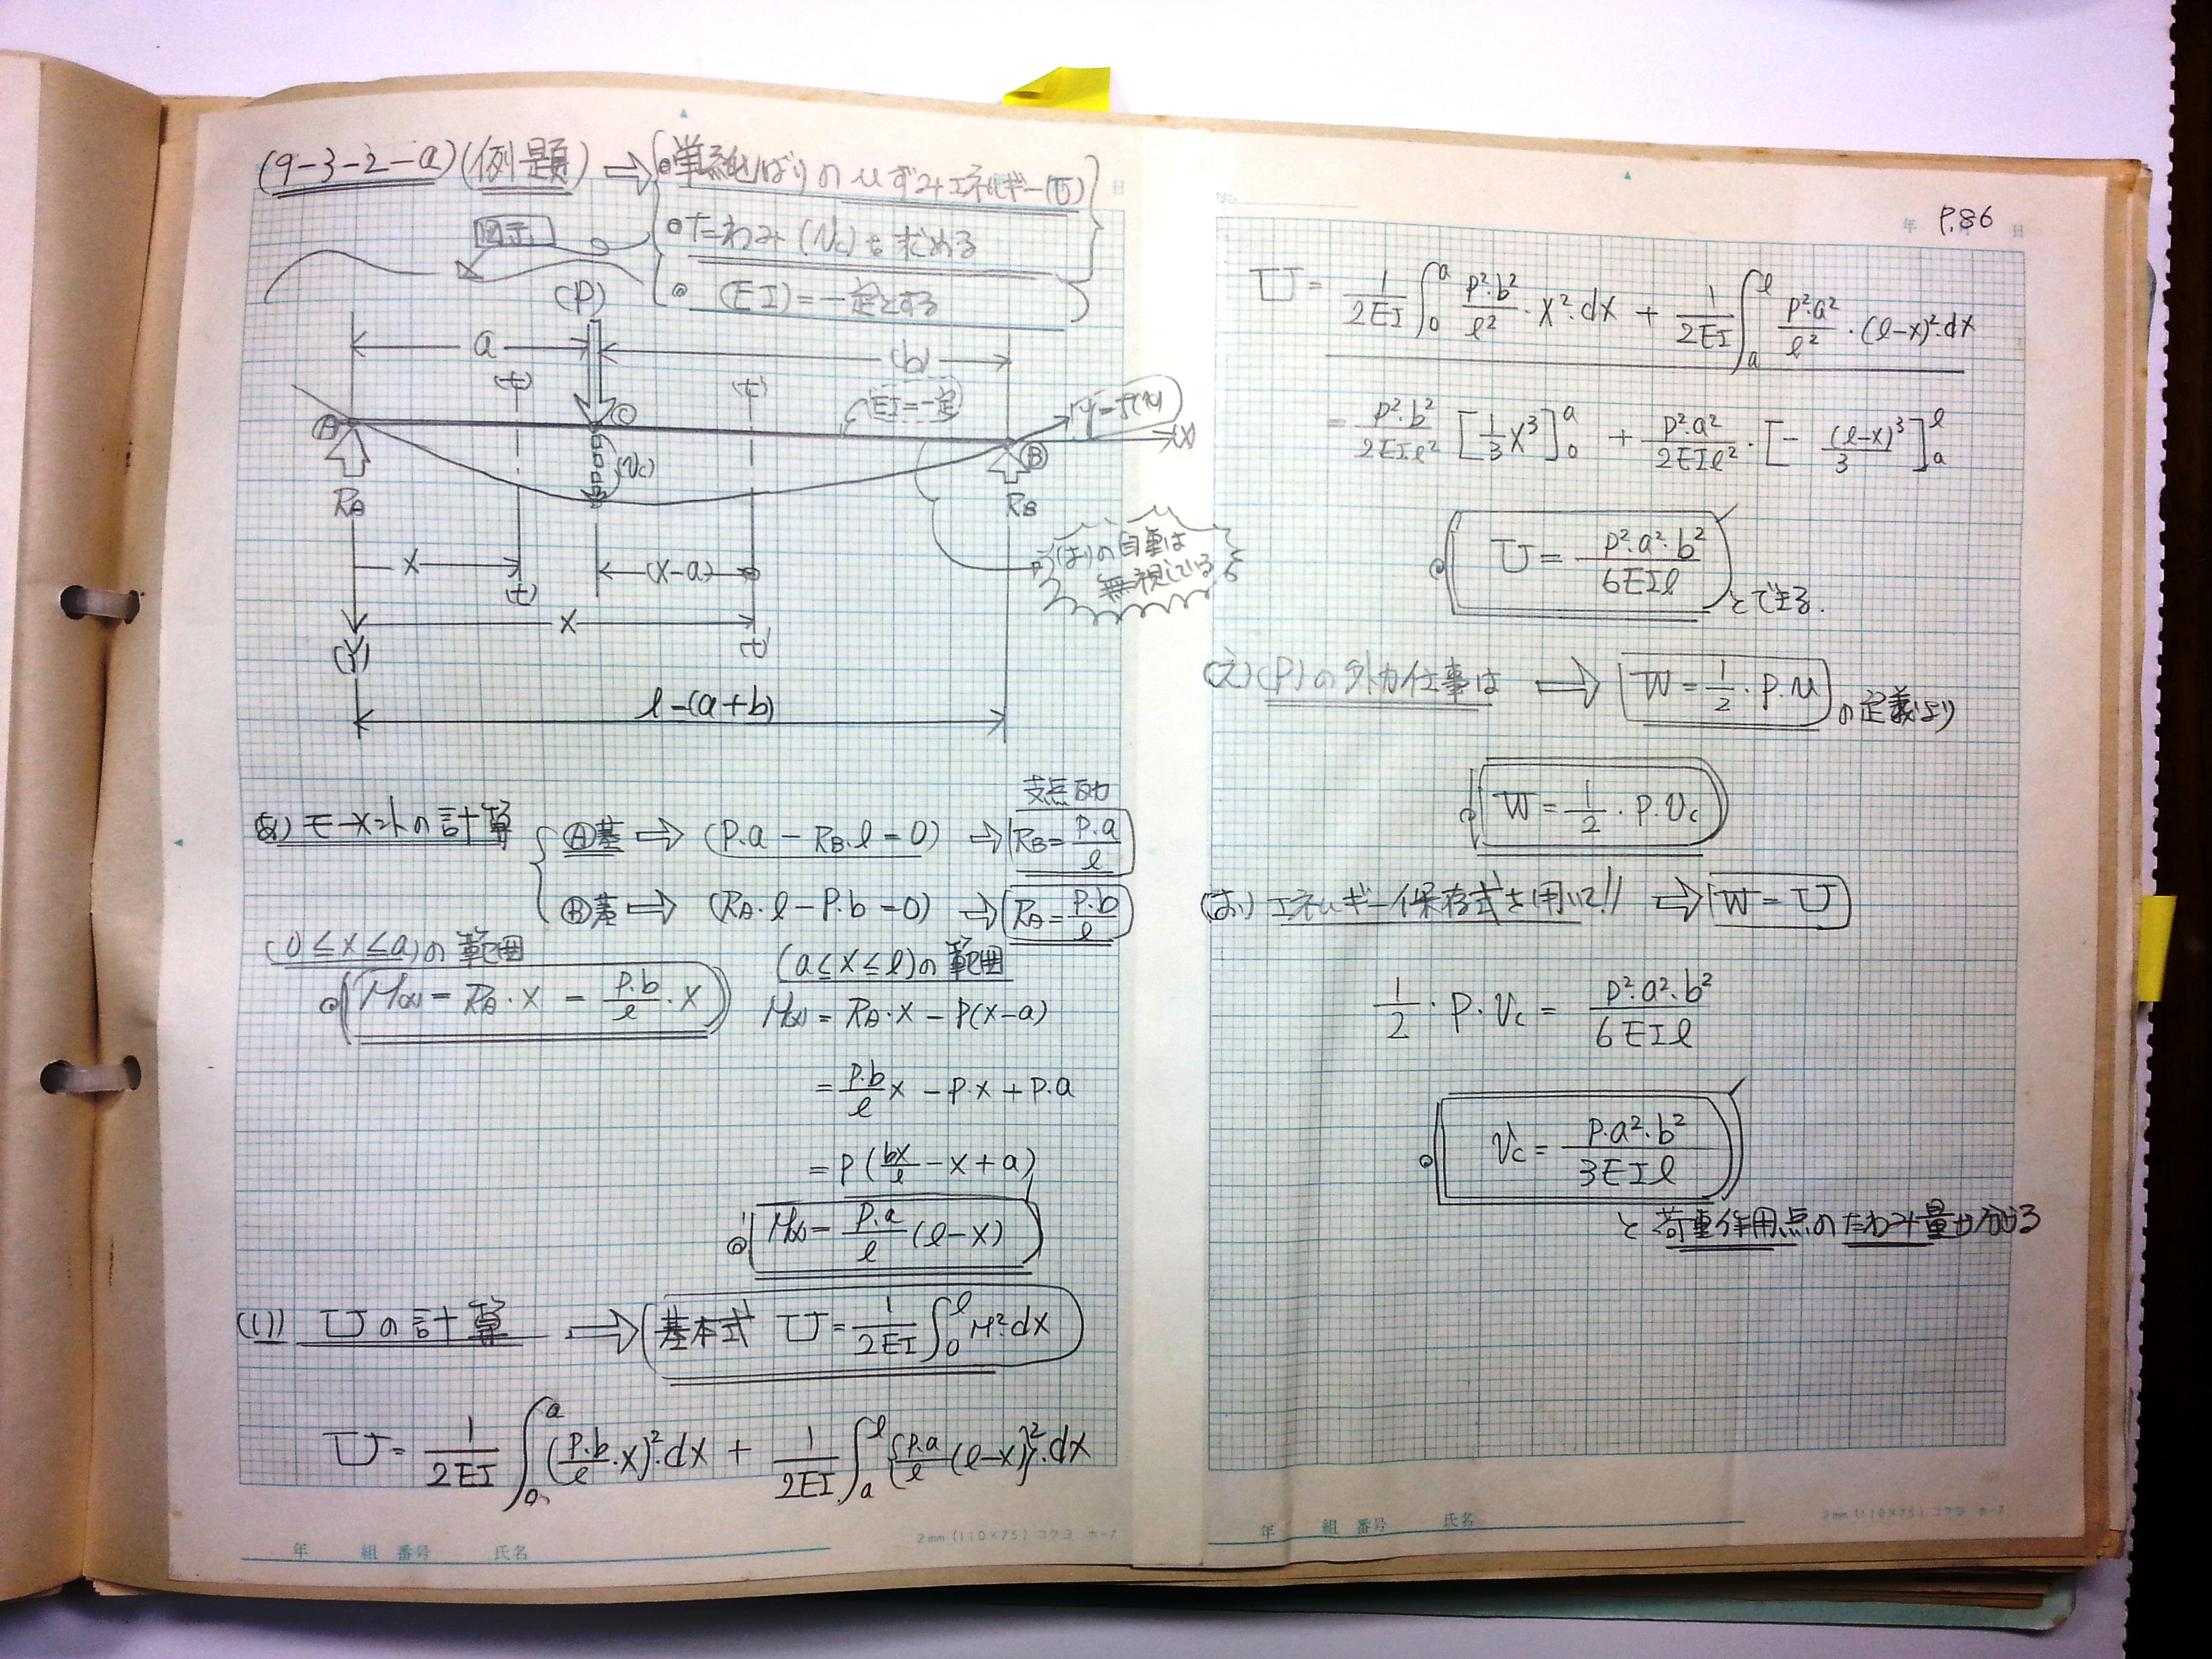 (9-3-2-a)(例題) ⇨ ◎単純ばりのひずみエネルギー(U)
◎たわみ(Vc)を求める
図示
◎ (EI)=一定とする
(P)
a
(b)
(t)
(t')
EI=一定
Ⓐ
Ⓒ
(Vc)
Ⓑ
(x)
RA
RB
(はり)の自重は
無視している
x
(x-a)
(t)
x
(t')
(Y)
l-(a+b)
モーメントの計算
支点反力
Ⓐ基 ⇨ (P.a - RB.l = 0) → RB = P.a/l
Ⓑ基 ⇨ (RA.l - P.b = 0) → RA = P.b/l
(0≦x≦a)の範囲
◎ M(x) = RA・x = P.b/l・x
(a≦x≦l)の範囲
M(x) = RA・x - P(x-a)
= P.b/l x - P.x + P.a
= P(bx/l - x + a)
◎ M(x) = P.a/l (l-x)
(い) Uの計算 ⇨ 基本式 U = 1/2EI ∫₀ˡ M²・dx
U = 1/2EI ∫₀ᵃ (P.b/l・x)²・dx + 1/2EI ∫ₐˡ {P.a/l (l-x)}²・dx
年 組 番号 氏名
2mm(110×75) コクヨ ホ-7
年 P.86 日
U = 1/2EI ∫₀ᵃ P²・b²/l²・x²・dx + 1/2EI ∫ₐˡ P²・a²/l²・(l-x)²・dx
= P²・b²/2EIl² [1/3 x³]₀ᵃ + P²・a²/2EIl²・[- (l-x)³/3]ₐˡ
◎ U = P²・a²・b²/6EIl とできる.
(え)(P)の外力仕事は ⇨ W = 1/2・P.u の定義より
◎ W = 1/2・P.Vc
(お) エネルギー保存式を用いて!! ⇨ W = U
1/2・P・Vc = P²・a²・b²/6EIl
◎ Vc = P.a²・b²/3EIl
と荷重作用点のたわみ量が分かる
年 組 番号 氏名
2mm(110×75) コクヨ ホ-7